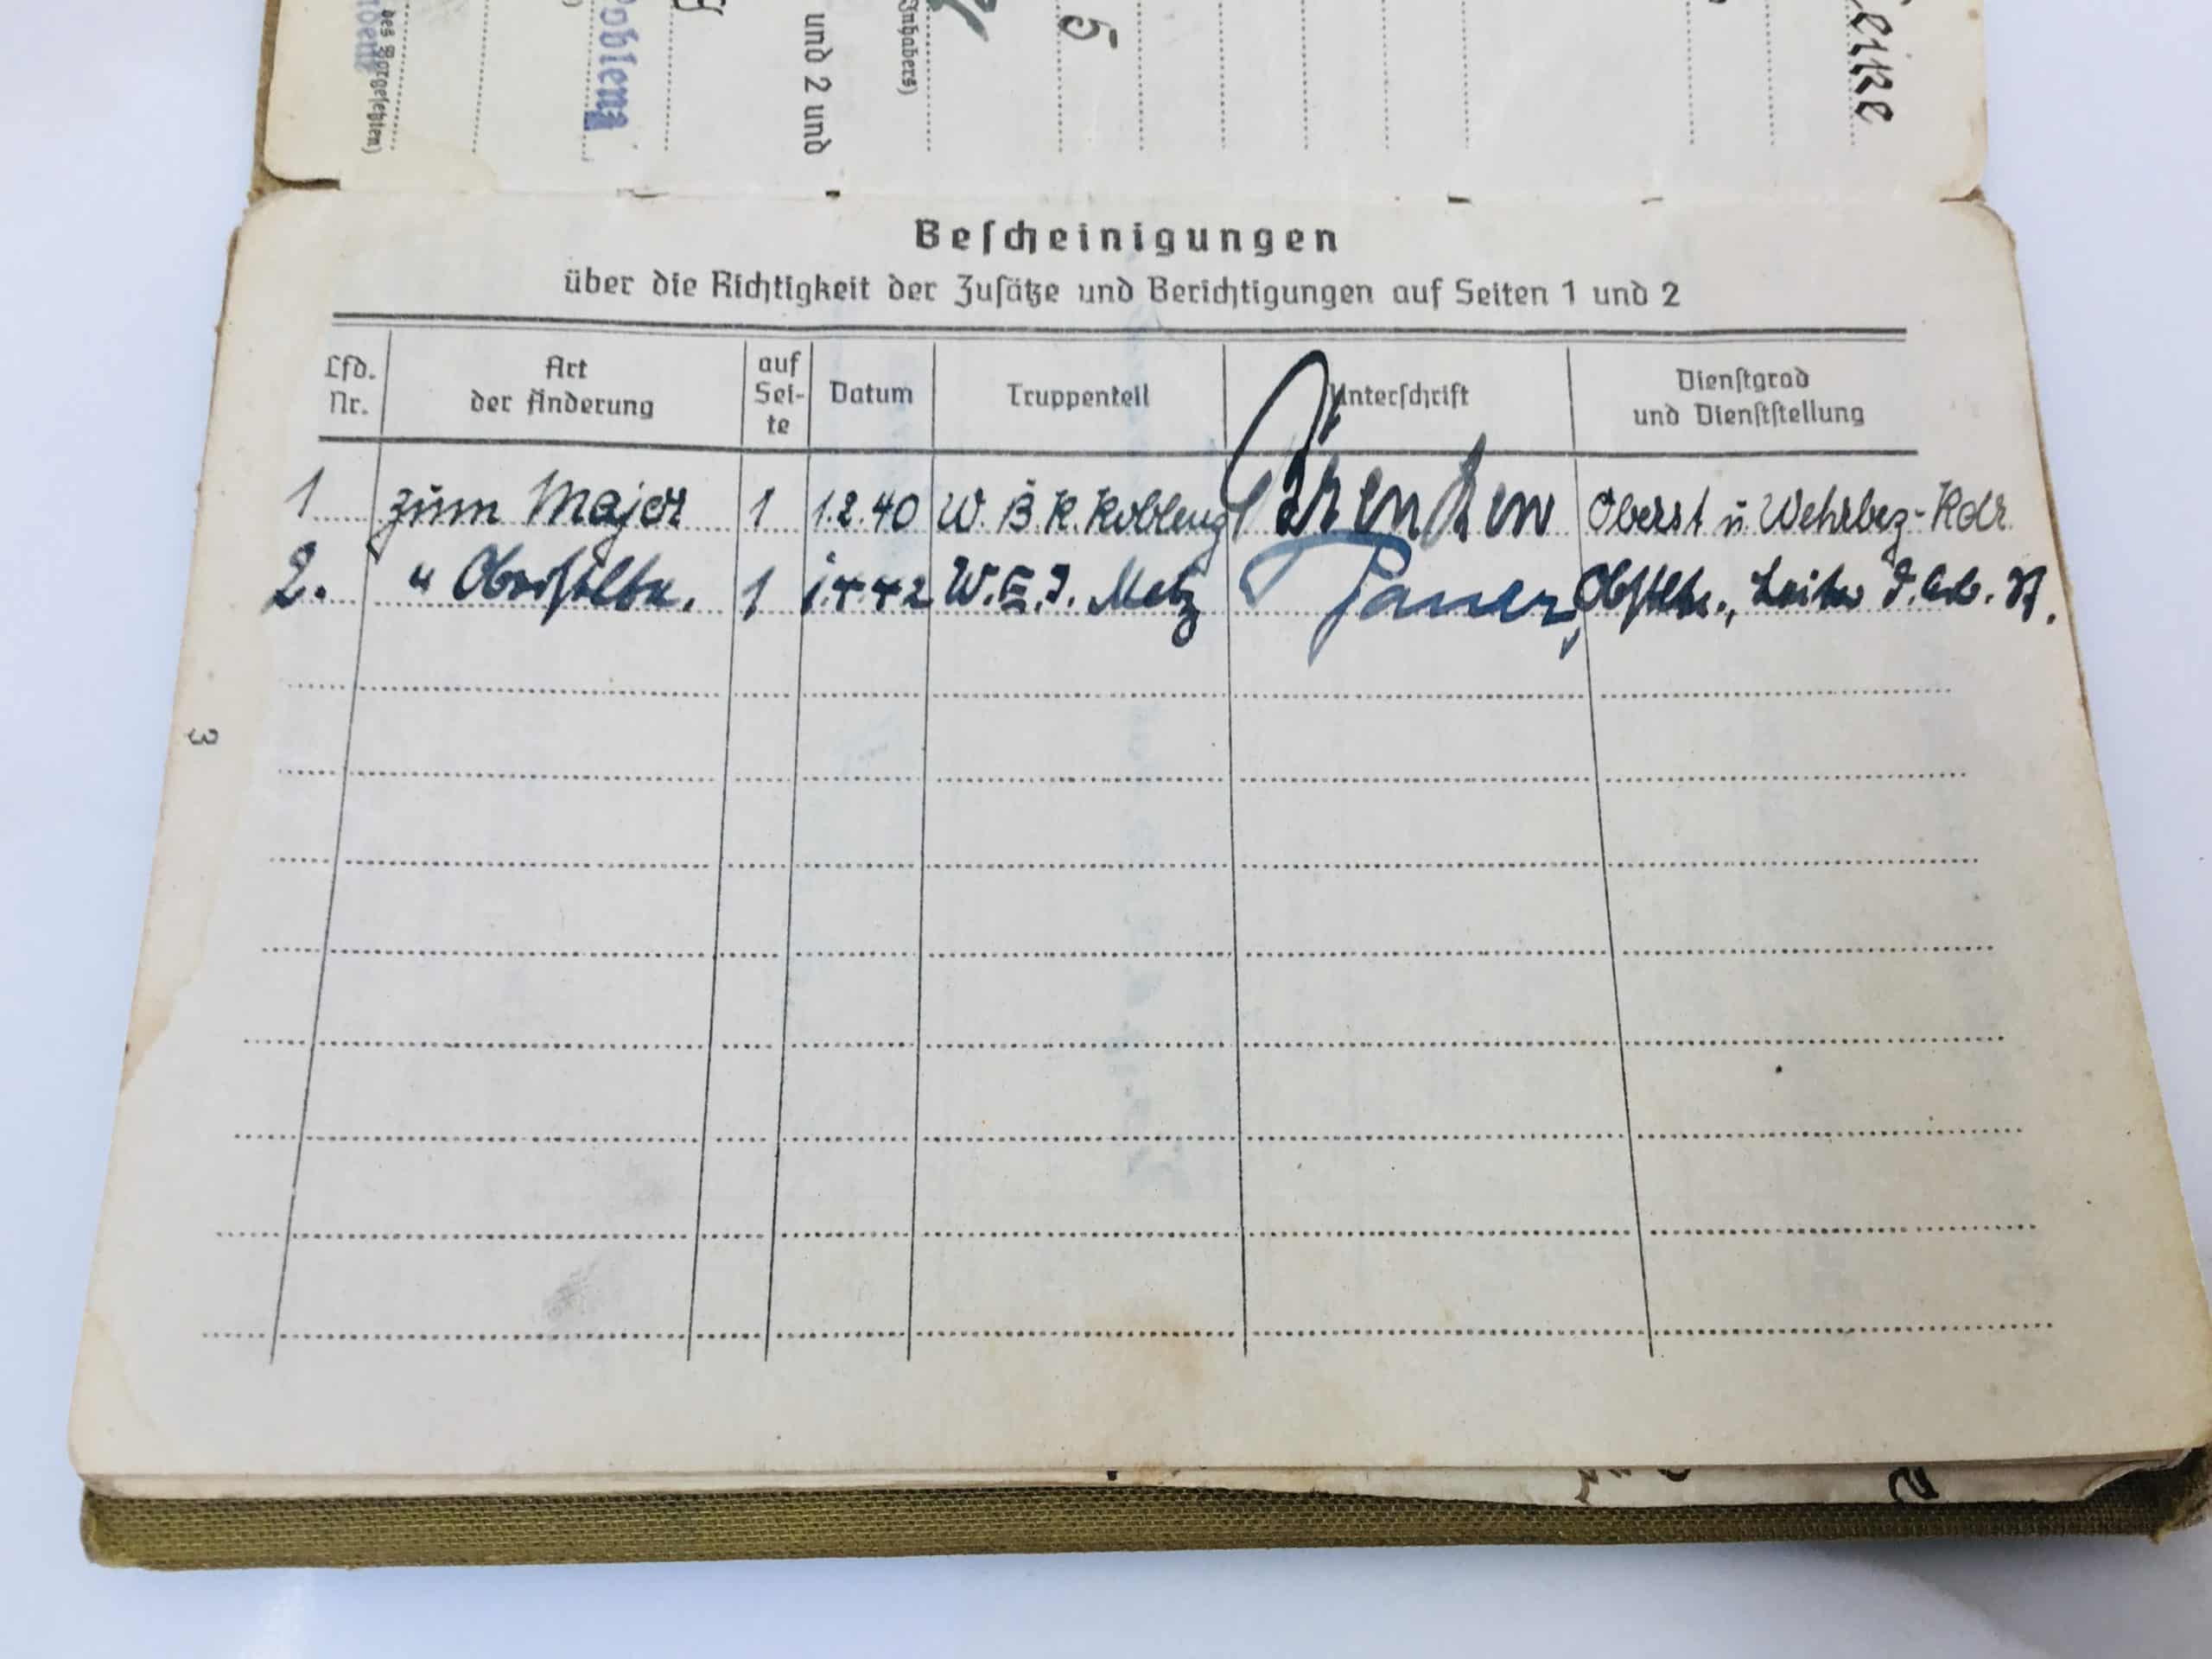 des Vorgesetzten)
Koblenz
und 2 und
Inhabers)
5
Bescheinigungen
über die Richtigkeit der Zusätze und Berichtigungen auf Seiten 1 und 2
Lfd. Nr. Art der Änderung auf Sei- te Datum Truppenteil Unterschrift Dienstgrad und Dienststellung
1 zum Major 1 1.2.40 W. B. K. Koblenz Oberst u. Wehrbez-Kdr.
2. " Oberstltn. 1 1.4.42 W.E.I. Metz Obstltn., Leiter d.
3